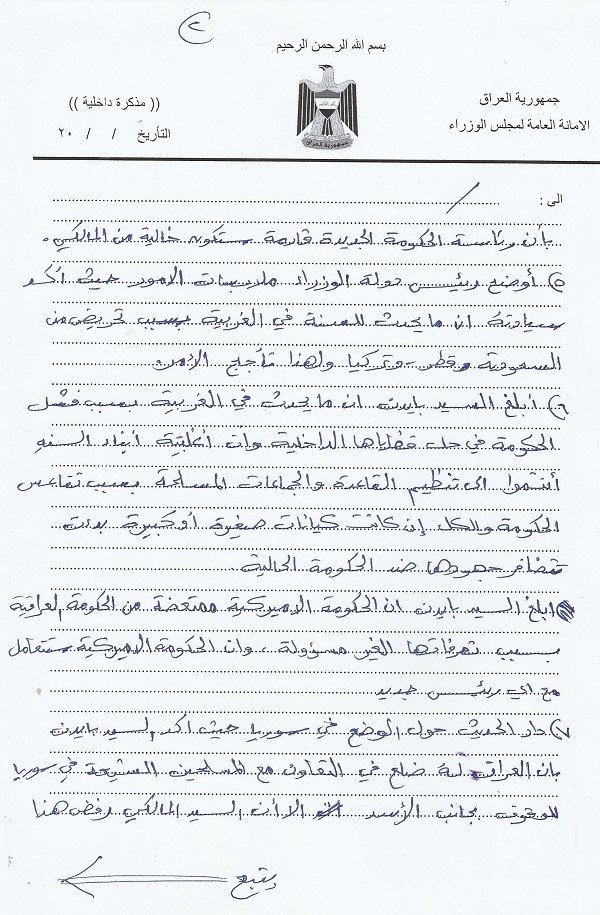 ٤
بسم الله الرحمن الرحيم
جمهورية العراق
الامانة العامة لمجلس الوزراء
(( مذكرة داخلية ))
التأريخ / / ٢٠
جمهورية العراق
الى : /
بأن رئاسة الحكومة الجديدة قادمة ستكون خالية من المالكي.
٥) أوضح رئيس دولة الوزراء ملابسات الامور حيث أكد
سيادته ان ما يحدث للسنة في الغربية بسبب تحريض من
السعودية وقطر وتركيا ولهذا تأجج الأمن.
٦) أبلغ السيد بايدن ان ما يحدث في الغربية بسبب فشل
الحكومة في حل قضاياها الداخلية وان أغلبية أبناء السنه
أنتموا الى تنظيم القاعدة والجماعات المسلحة بسبب تقاعس
الحكومة والكل إن كانت كيانات صغيرة أو كبيرة بدءت
تتضافر جهودها ضد الحكومة الحالية.
ابلغ السيد بايدن ان الحكومة الاميركية ممتعضة من الحكومة العراقية
بسبب تصرفاتها الغير مسؤولة. وان الحكومة الاميركية ستتعامل
مع اي رئيس جديد
٧) دار الحديث حول الوضع في سوريا حيث اكد السيد بايدن
بان العراق له ضلع في التعاون مع المسلحين الشيعة في سوريا
للوقوف بجانب الأسد الا أن السيد المالكي رفض هذا
يتبع